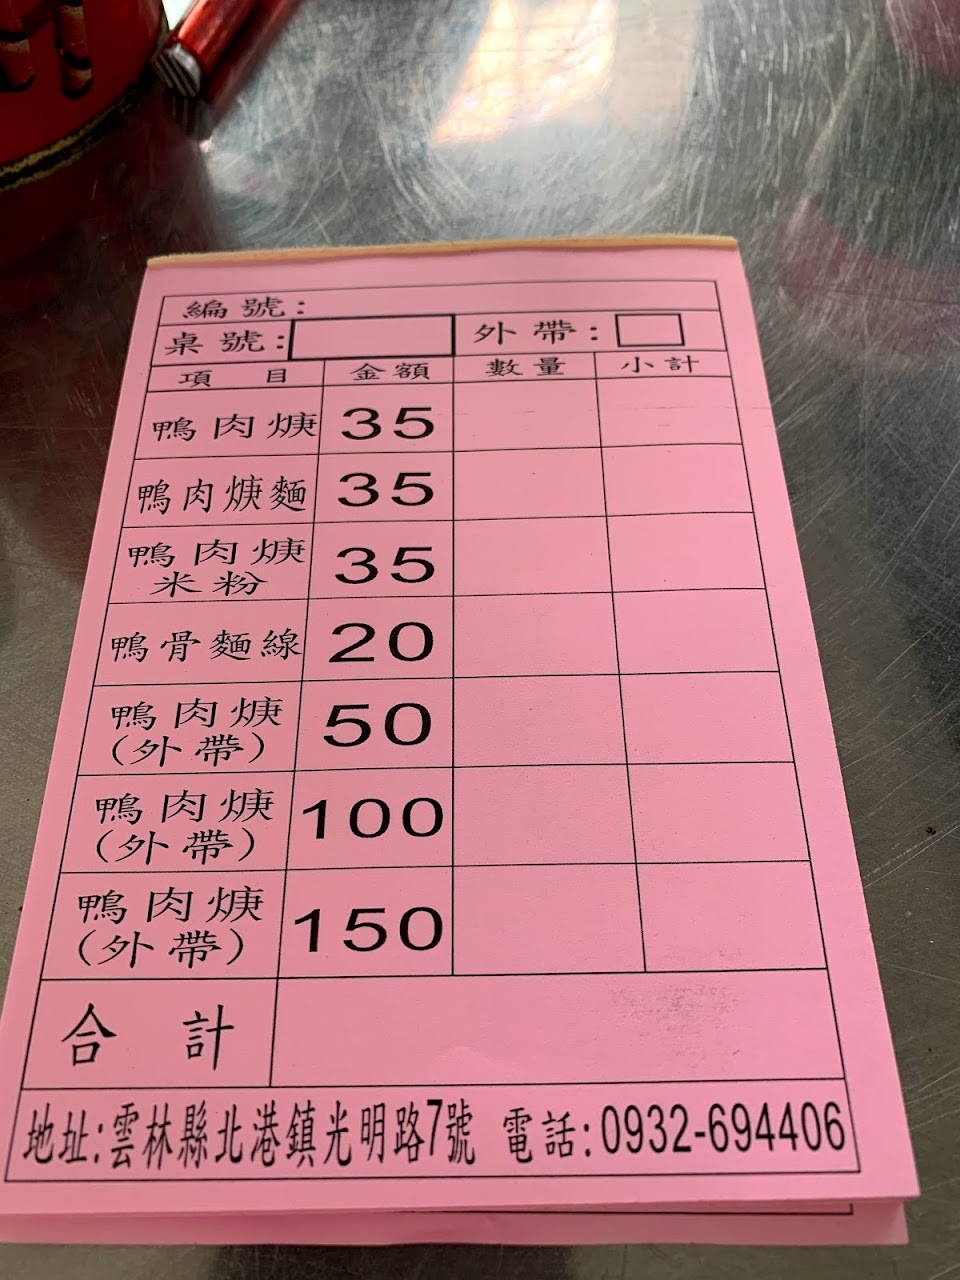 編號:
桌號: 外帶:
項目 金額 數量 小計
鴨肉焿 35
鴨肉焿麵 35
鴨肉焿
米粉 35
鴨骨麵線 20
鴨肉焿
(外帶) 50
鴨肉焿
(外帶) 100
鴨肉焿
(外帶) 150
合計
地址:雲林縣北港鎮光明路7號 電話:0932-694406